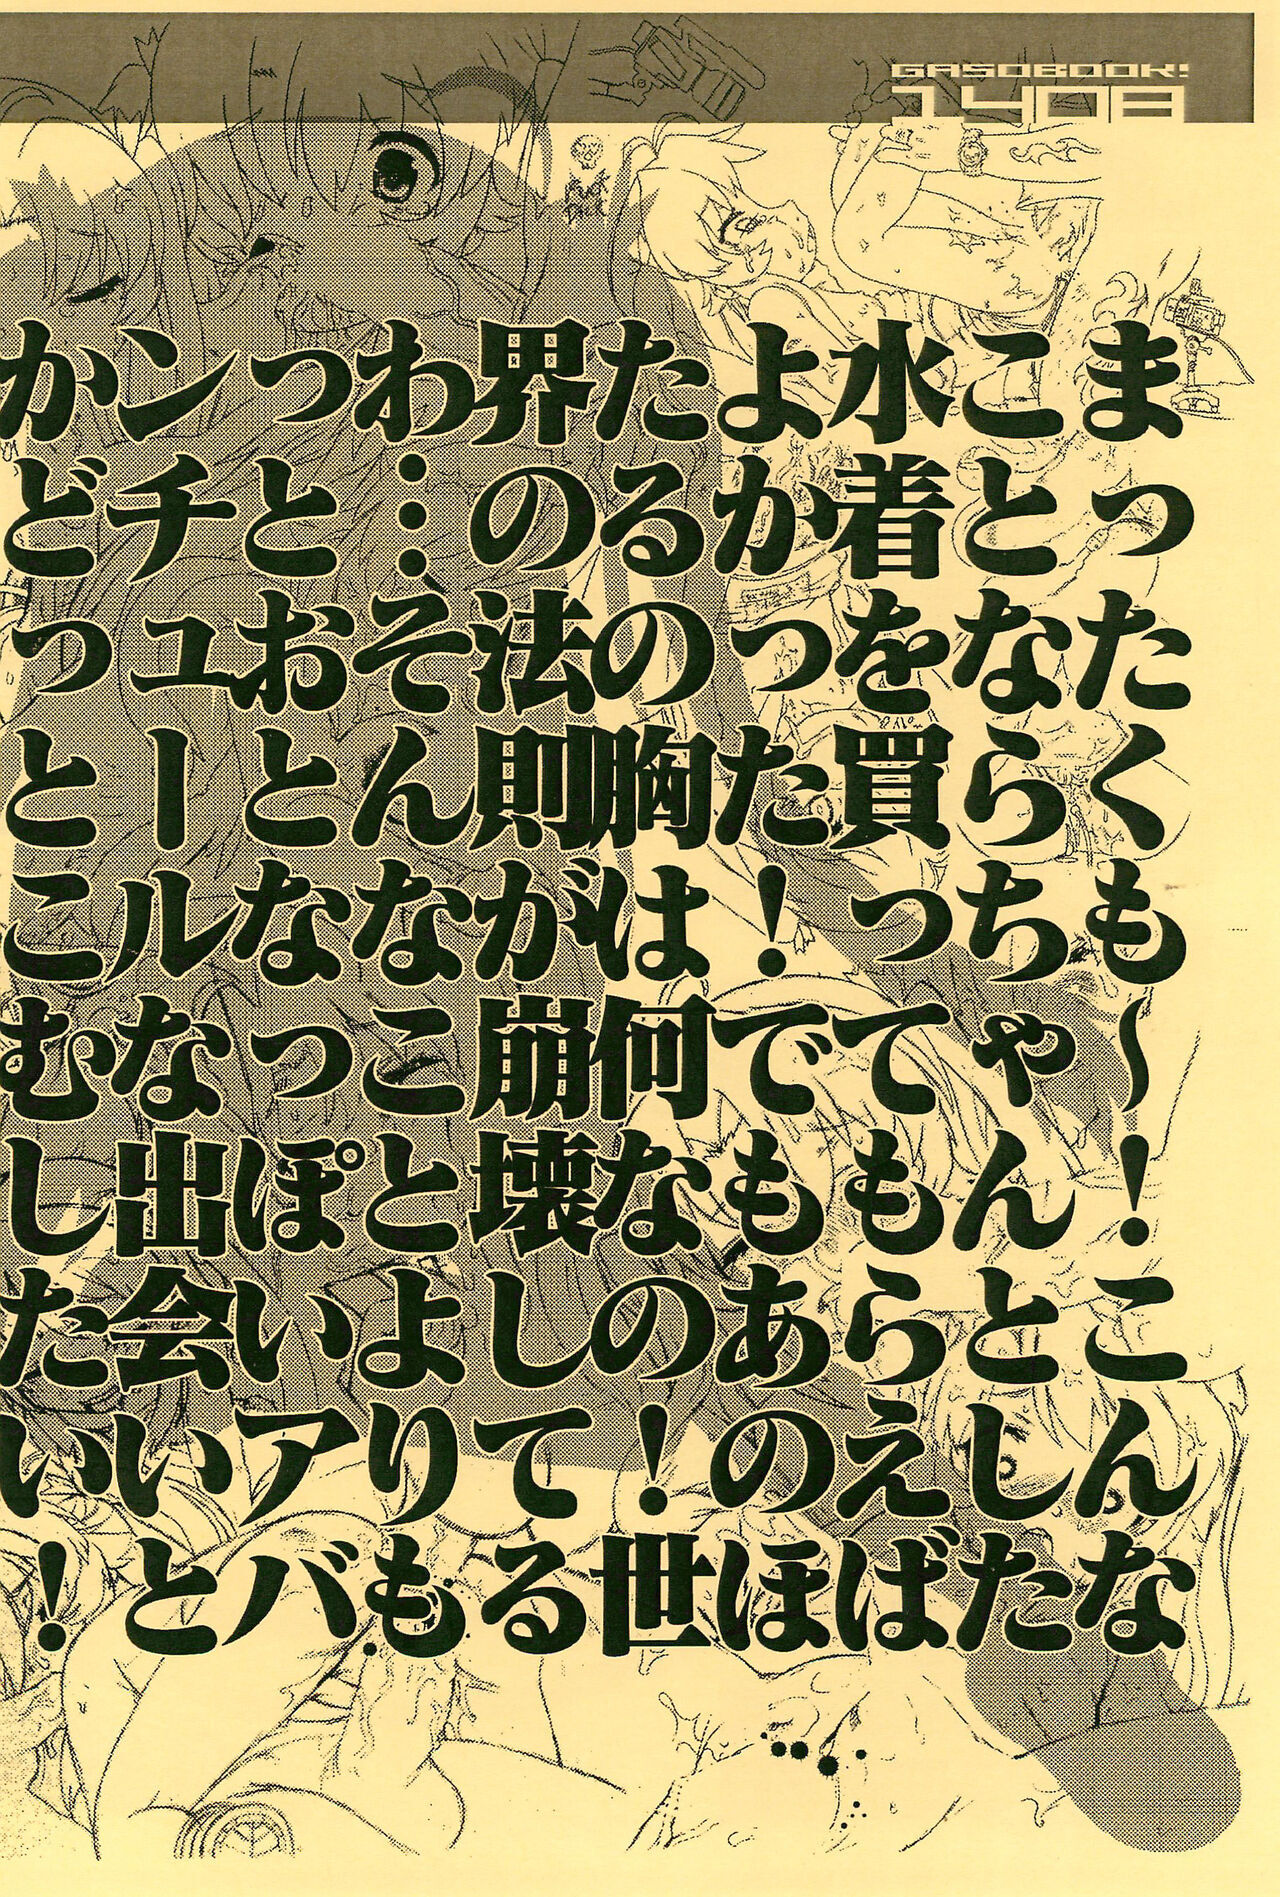 GASOBOOK!
1408
まったくも〜!こんな
ことならちゃんとした
水着を買ってもらえば
よかった!でもあのほ
たるの胸は何なの!世
界の法則が崩壊してる
わ…そんなことよりも
っとおとなっぽいアバ
ンチュールな出会いと
かどっとこむしたい!